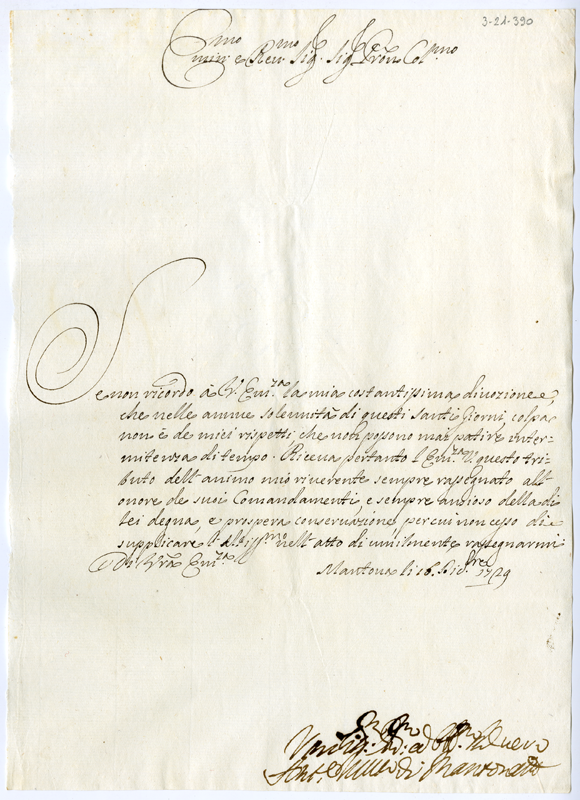 3-21-390
Emin.mo e Rev.mo Sig. Sig. Pron Col.mo
Se non ricordo à V. Em.za la mia costantissima divozione,
che nelle annue solennità di questi Santi Giorni, colpa
non è de miei rispetti che non possono mai patire inter-
mitenza di tempo. Riceva pertanto l'Em.za V. questo tri-
buto dell'animo mio riverente sempre rassegnato all'
onore de suoi Comandamenti, e sempre ansioso della di
lei degna, e prospera conservazione per cui non cesso di
supplicare l'Altiss.mo nell'atto di umilmente rassegnarmi
Di Vra Em.za
Mantova li 16. Dic.bre 1729